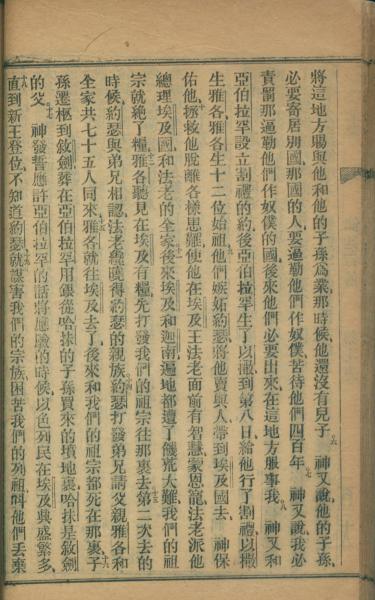 將這地方賜與他和他的子孫爲業那時候他還沒有兒子 六 神又說他的子孫
必要寄居別國那國的人要逼勒他們作奴僕苦待他們四百年 七 神又說我必
責罰那逼勒他們作奴僕的國後來他們必要出來在這地方服事我 八 神又和
亞伯拉罕設立割禮的約後亞伯拉罕生了以撒到第八日給他行了割禮以撒
生雅各雅各生十二位始祖 九 他們嫉妬約瑟將他賣與人帶到埃及國去 神保
佑他 十 拯救他脫離各樣患難使他在埃及王法老面前有智慧蒙恩寵法老派他
總理埃及國和法老的全家 十一 後來埃及和迦南遍地都遭了饑荒大難我們的祖
宗就絕了糧 十二 雅各聽見在埃及有糧先打發我們的祖宗往那裏去 十三 第二次去的
時候約瑟與弟兄相認法老纔曉得約瑟的親族 十四 約瑟打發弟兄請父親雅各和
全家共七十五人同來 十五 雅各就往埃及去了後來和我們的祖宗都死在那裏 十六 子
孫遷柩到敘劍葬在亞伯拉罕用銀從哈抹的子孫買來的墳地裏哈抹是敘劍
的父 十七 神發誓應許亞伯拉罕的話將應驗的時候以色列民在埃及興盛繁多
十八 直到新王登位不知道約瑟 十九 就謀害我們的宗族困苦我們的列祖叫他們丟棄